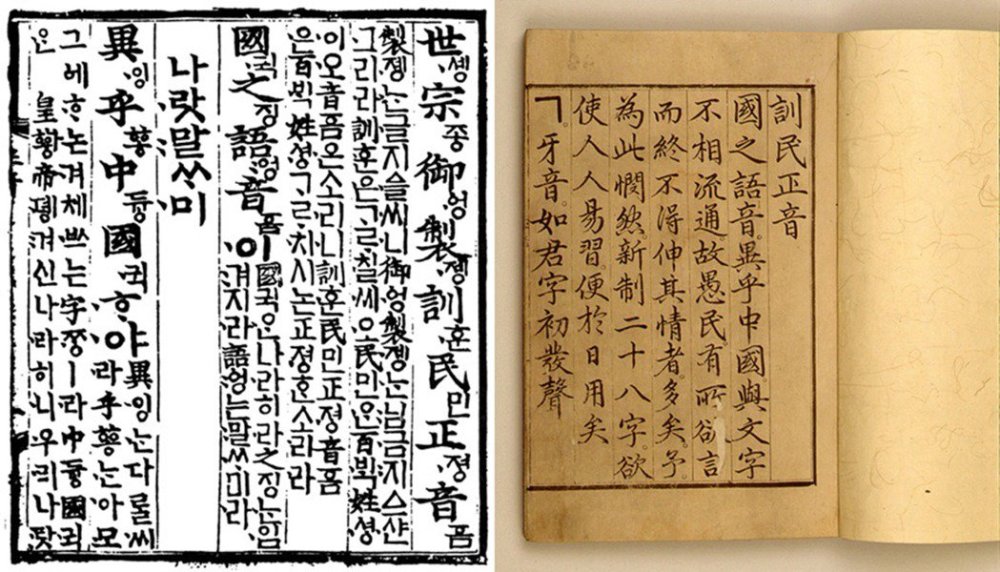 世솅宗조ᇰ御ᅌᅥᆼ製졩訓훈民민正져ᇰ音ᅙᅳᆷ
製졩ᄂᆞᆫ글지ᅀᅳᆯ씨니御ᅌᅥᆼ製졩ᄂᆞᆫ님금지ᅀᅳ샨
그리라訓훈은ᄀᆞᄅᆞ칠씨오民민ᄋᆞᆫ百ᄇᆡᆨ姓셔ᇰ
이오音ᅙᅳᆷ은소리니訓훈民민正져ᇰ音ᅙᅳᆷ
은百ᄇᆡᆨ姓셔ᇰᄀᆞᄅᆞ치시논正져ᇰᄒᆞᆫ소리라
國귁之징語ᅌᅥᆼ音ᅙᅳᆷ이
國귁ᄋᆞᆫ나라히라之징ᄂᆞᆫ입
겨지라語ᅌᅥᆼ는말ᄊᆞ미라
나랏말ᄊᆞ미
異잉乎ᅘᅩᆼ中듀ᇰ國귁ᄒᆞ야
異잉ᄂᆞᆫ다ᄅᆞᆯ씨
라乎ᅘᅩᆼᄂᆞᆫ아모
그ᅌᅦᄒᆞ논겨체ᄡᅳ는字ᄍᆞᆼㅣ라中듀ᇰ國귁
ᄋᆞᆫ皇ᅘᅪᇰ帝뎽겨신나라히니우리나랏
訓民正音
國之語音。異乎中國。與文字
不相流通。故愚民有所欲言
而終不得伸其情者。多矣。予
為此憫然。新制二十八字。欲
使人人易習。便於日用矣
ㄱ。牙音。如君字初發聲